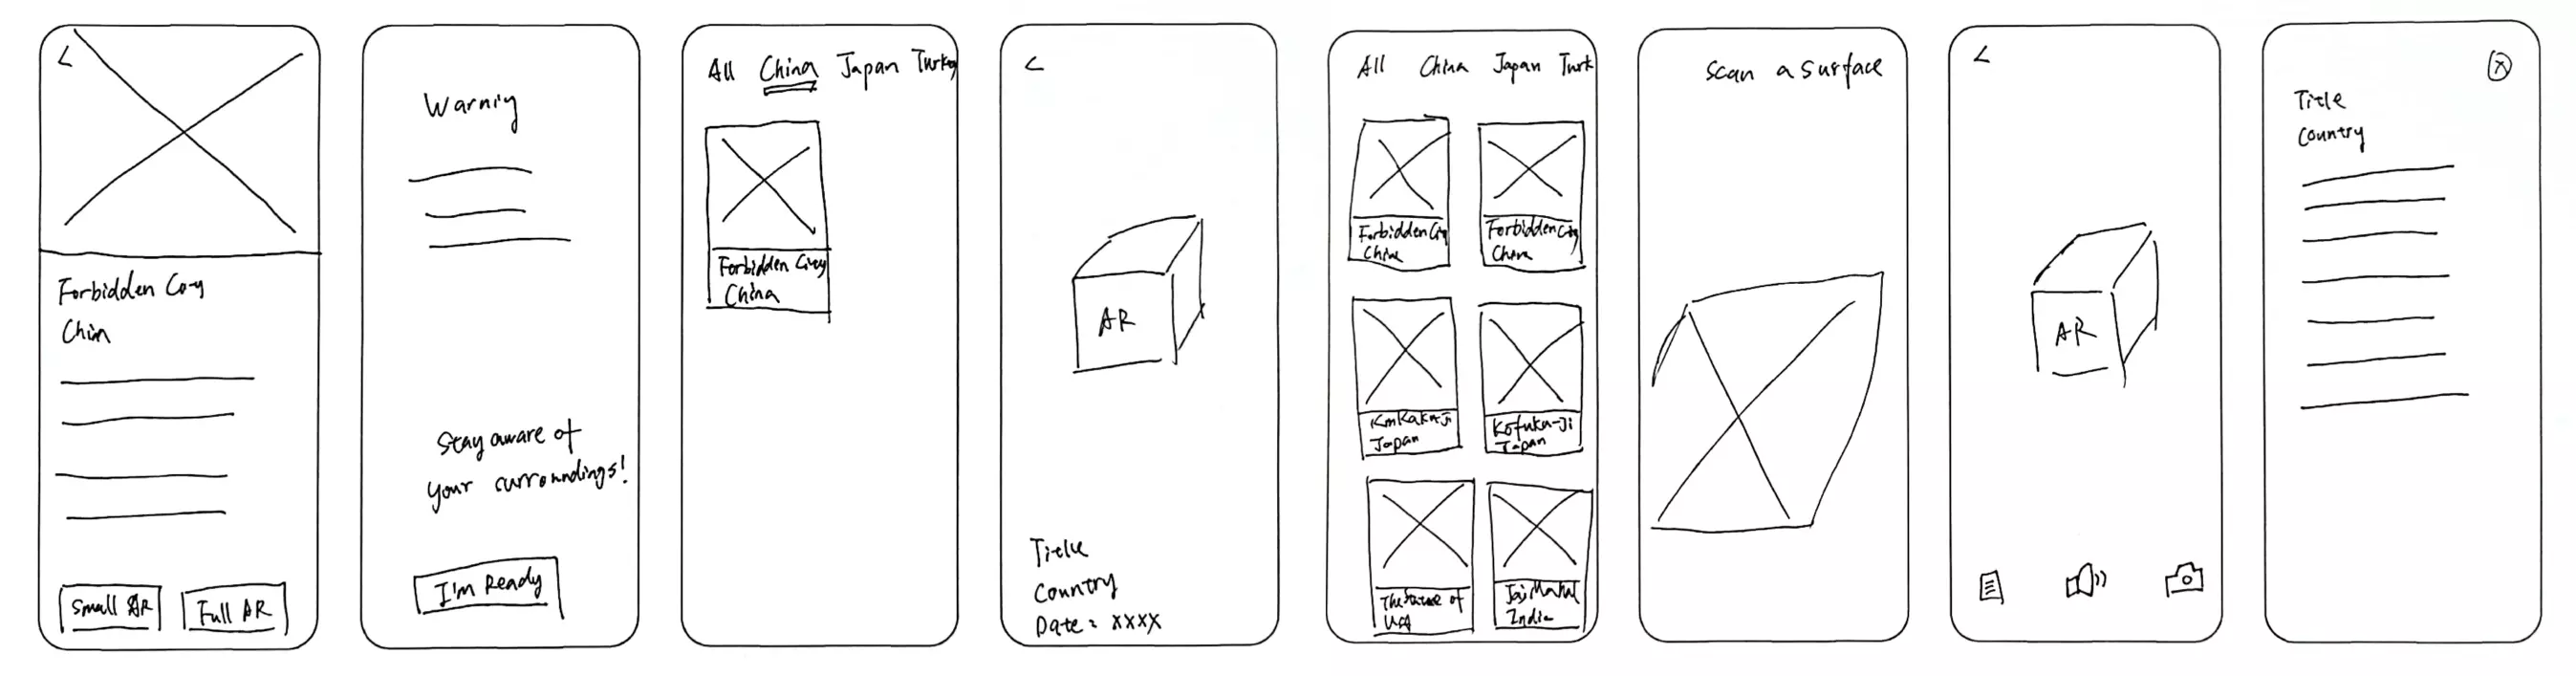 <
Forbidden City
Chin
Small AR
Full AR
Warniy
Stay aware of
your surroundings!
I'm Ready
All China Japan Turkey
Forbidden City
China
<
AR
Title
Country
Date: XXXX
All China Japan Turk
Forbidden City
China
Forbidden City
China
KinKaku-Ji
Japan
Kofuku-Ji
Japan
The Statue of
USA
Taj Mahal
India
Scan a surface
<
AR
X
Title
Country